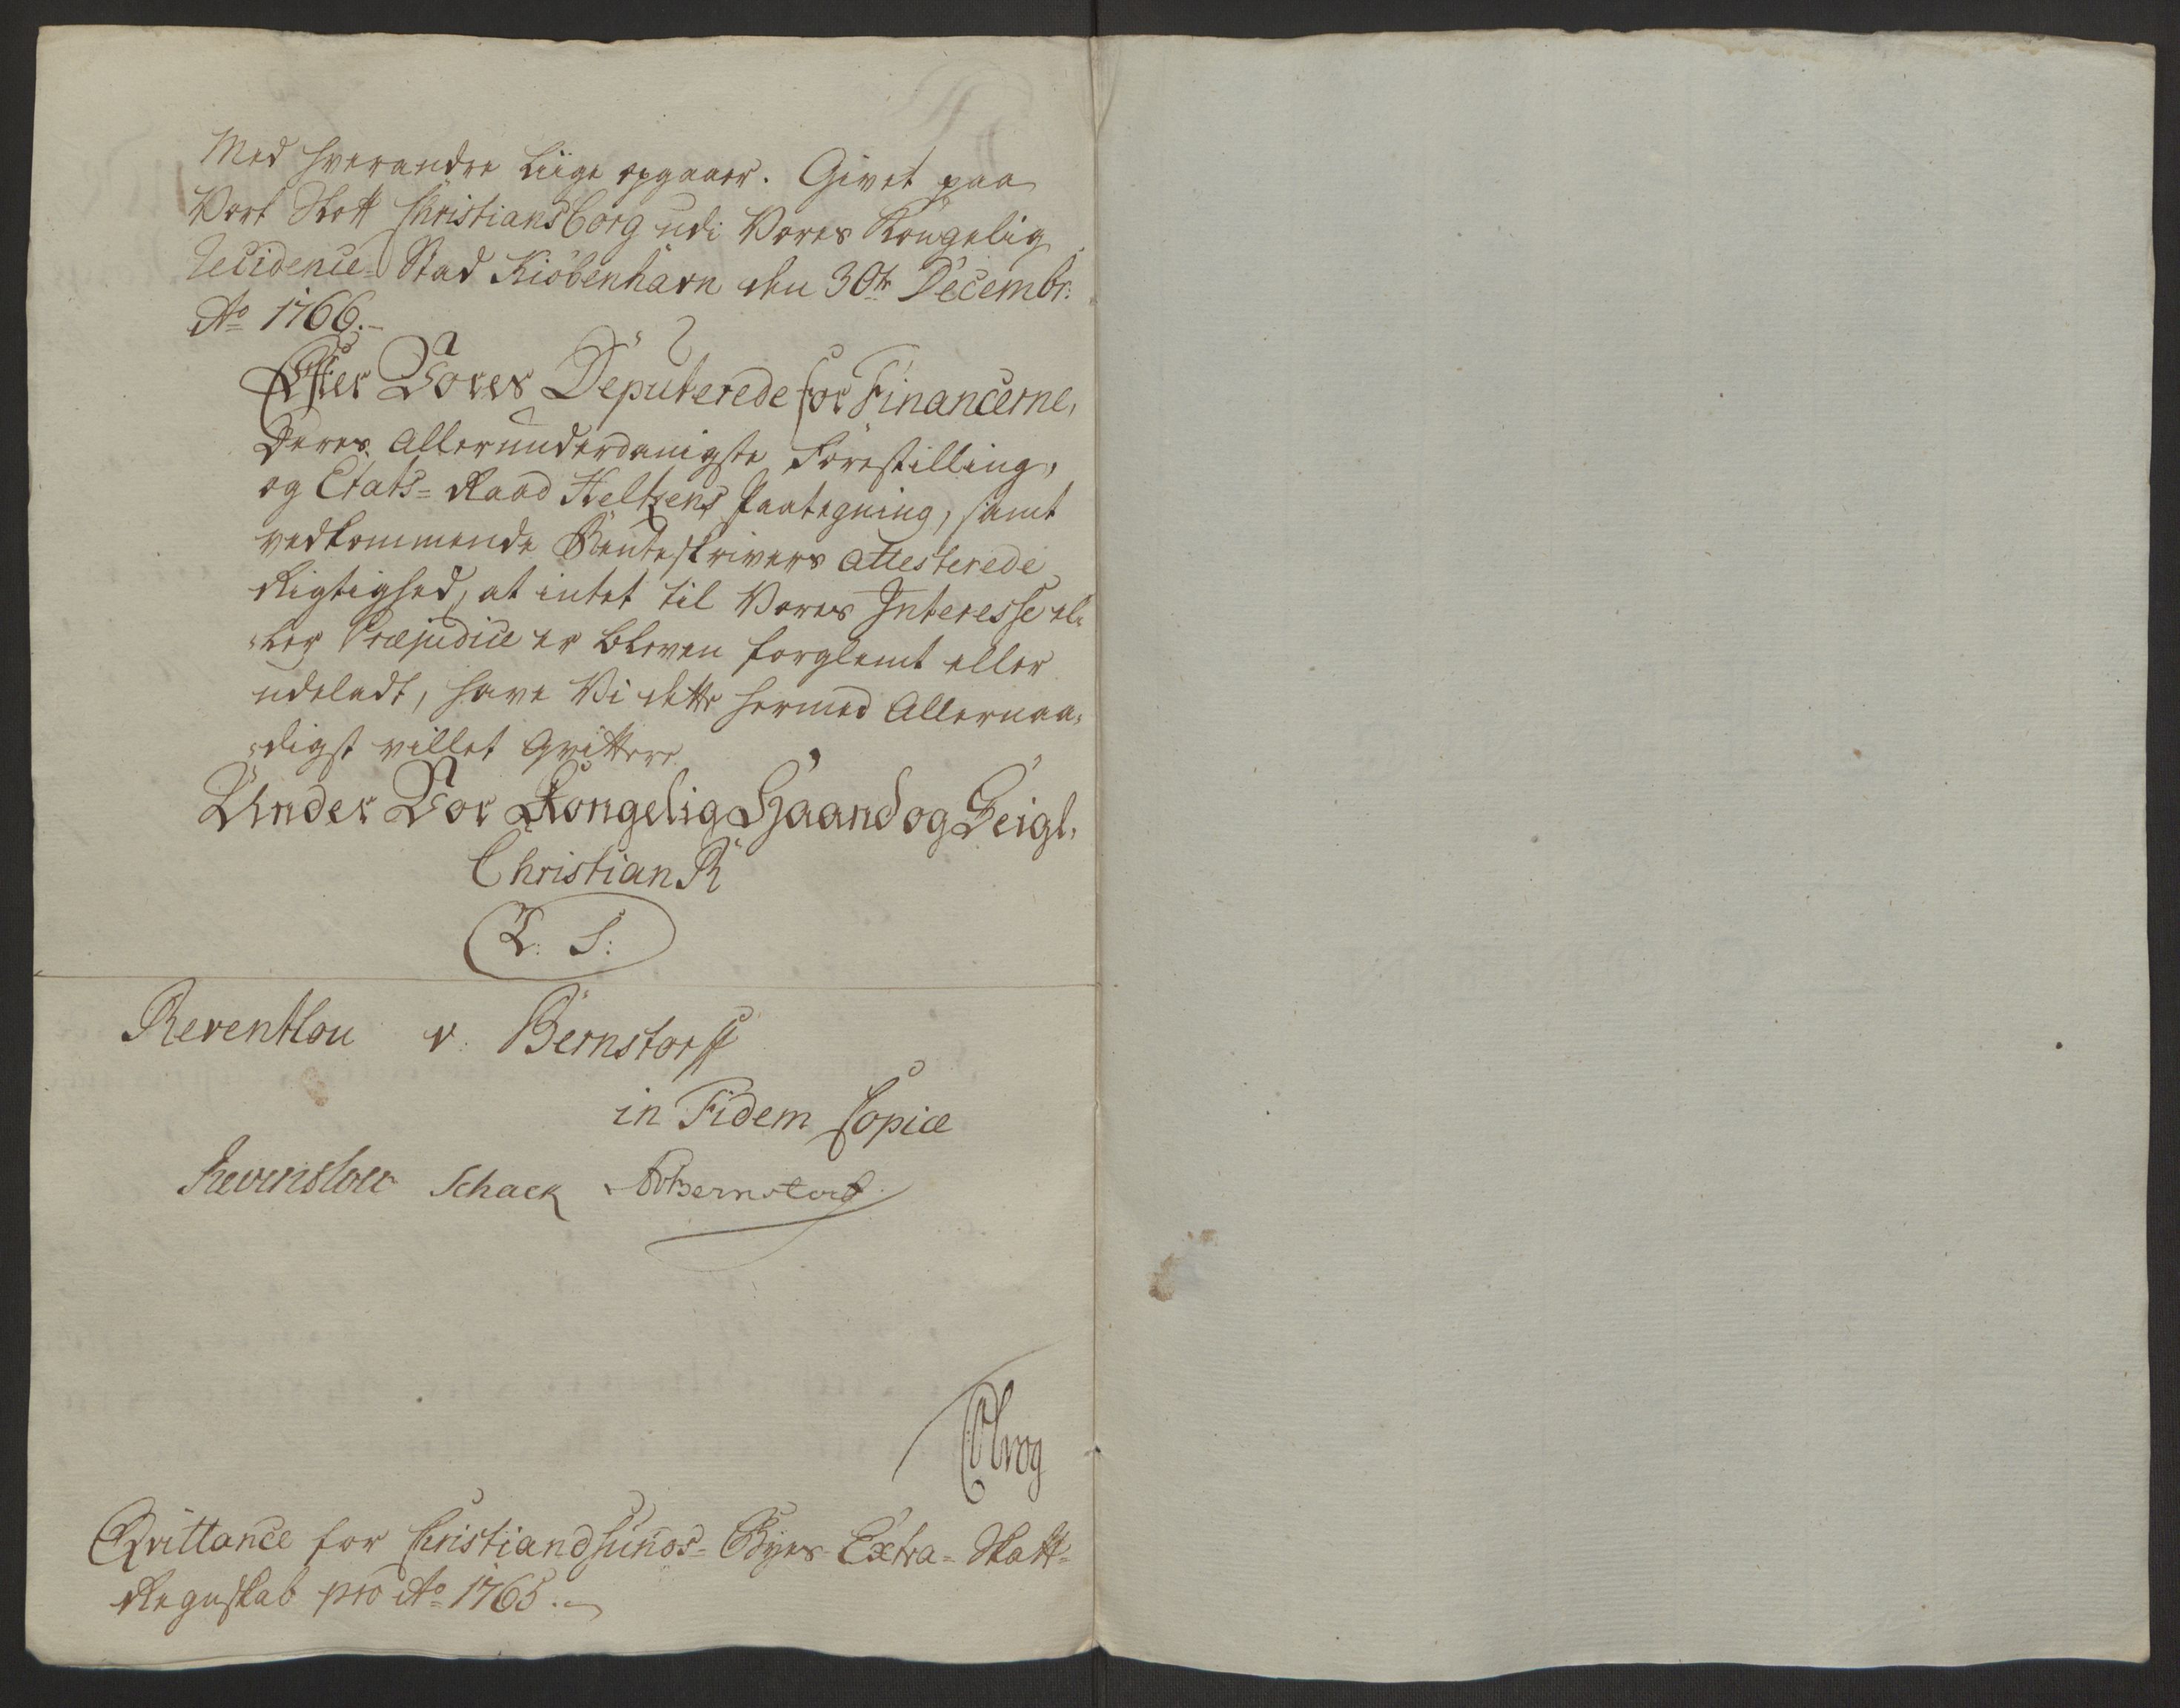 Med hverandre liige opgaaer. Givet paa
Vort Slott Christiansborg udi Vores Kongelig
Recidence- Stad Kiöbenhavn den 30te Decembr:
Ao 1766.
Efter Vores Deputerede for Financerne,
Deres Allerunderdanigste Forestilling,
og Etats- Raad Heltzens Paategning, samt
vedkommende Renteskrivers attesterede
Rigtighed, at intet til Vores Interesse el-
-ler Præjudice er bleven forglemt eller
udeladt, have Vi dette hermed Allernaa-
-digst villet Qvittere
Under Vor Kongelig Haand og Seigl,
Christian R
L. S:
Reventlou v. Bernstorff
in Fidem Copiæ
Reventlow Schack Bernstorf
Qvittance for Christiandsunds- Byes Extra- Skatt-
Regnskab pro Ao 1765.